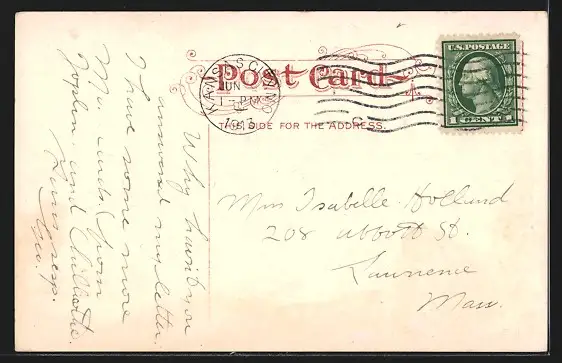 Post Card
THIS SIDE FOR THE ADDRESS.
KANSAS CITY, MO.
JUN
1 - PM
1913
U.S. POSTAGE
1 CENT 1
Miss Isabelle Holland
208 Abbott St.
Lawrence
Mass.
Why havn't you
answered my letter.
I have some more
Mo. cards. from
Joplin. and Chillicothe.
Yours resp.
Geo.